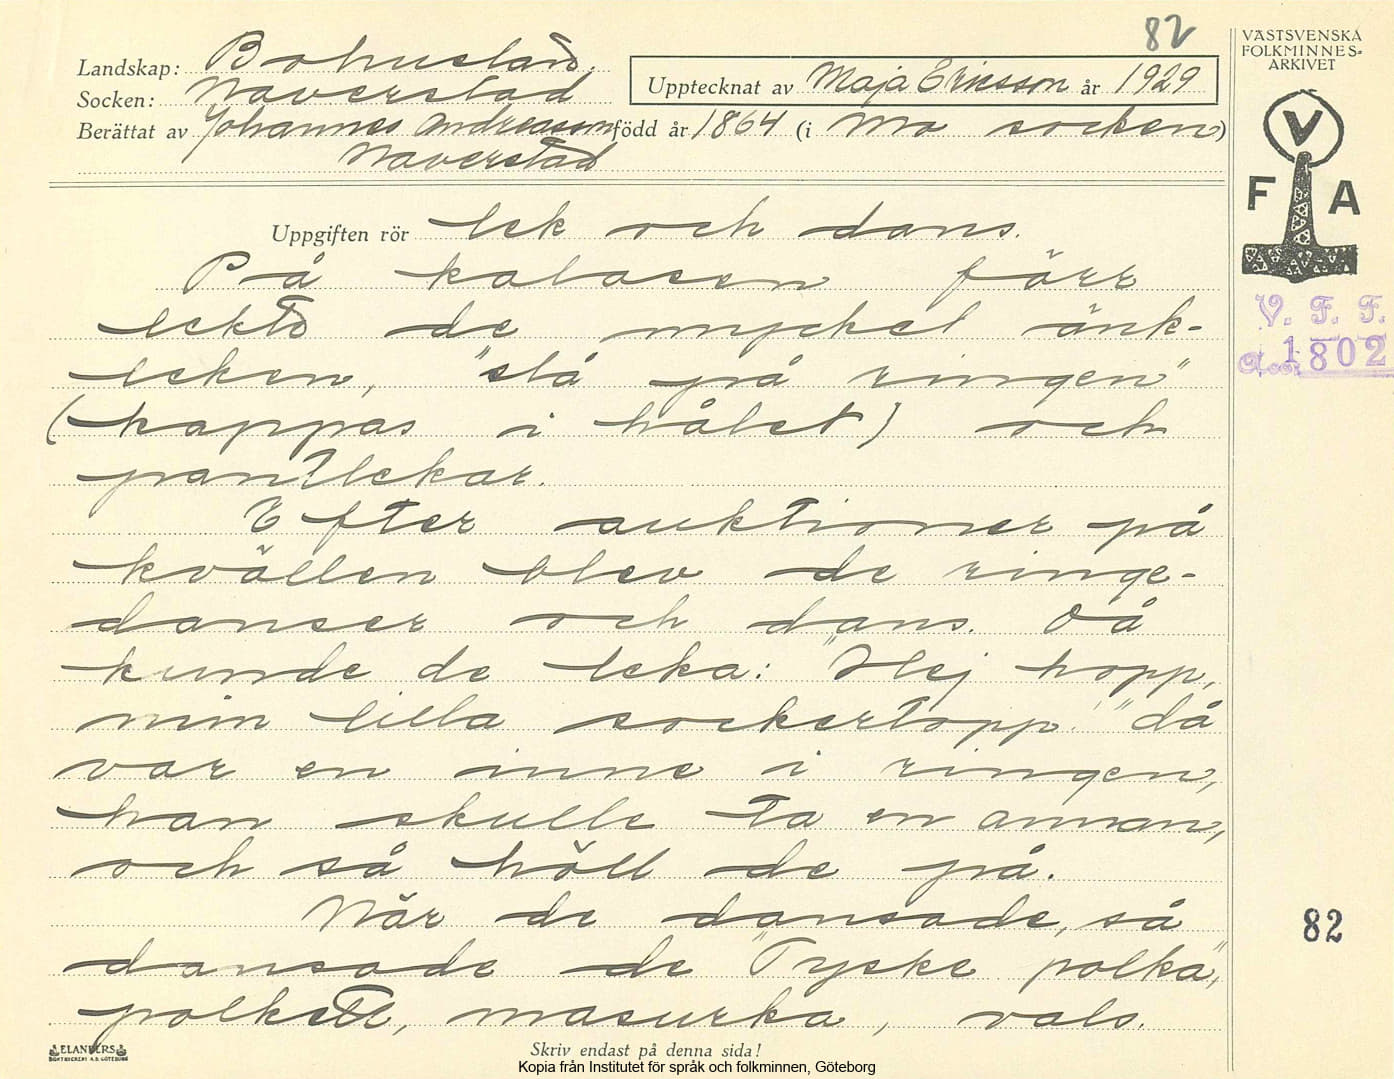 82
Landskap: Bohuslän.
Socken: Naverstad
Upptecknat av Maja Ericsson år 1929
Berättat av Johannes Andreasson, född år 1864 (i Mo socken)
Naverstad
VÄSTSVENSKA
FOLKMINNES-
ARKIVET
V
F A
V. F. F.
Acc. 1802
Uppgiften rör lek och dans.
På kalasen förr
lekte de mycket änk-
leken, "slå på ringen"
(hoppas i hålet) och
pantlekar.
Efter auktioner på
kvällen blev de ringe-
danser och dans. Då
kunde de leka: "Hej hopp,
min lilla sockertopp!" då
var en inne i ringen,
han skulle ta en annan,
och så höll de på.
När de dansade, så
dansade de "Tyske polka",
polkett, masurka, vals.
82
ELANDERS
BOKTRYCKERI A.B. GÖTEBORG
Skriv endast på denna sida!
Kopia från Institutet för språk och folkminnen, Göteborg